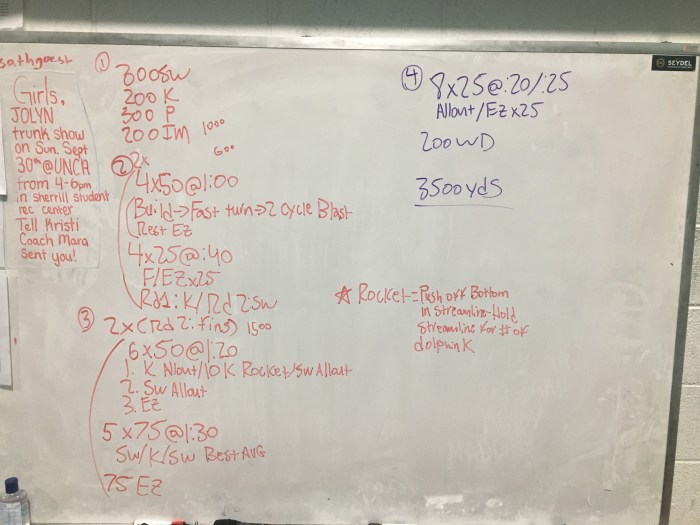 Girls,
JOLYN
trunk show
on Sun. Sept
30th @UNCA
from 4-6pm
in sherrill student
rec center
Tell Kristi
Coach Mara
Sent you!
①
300sw
200 K
300 P
200 IM 1000
600
② 2x
4x50@1:00
Build→Fast turn→2 cycle Blast
Rest EZ
4x25@:40
F/EZx25
Rd1: K/Rd 2:sw
③ 2x(Rd 2: fins) 1500
6x50@1:20
1. K Allout/10 K Rocket/sw Allout
2. Sw Allout
3. EZ
5 x75@1:30
Sw/K/sw Best AVG
75 EZ
④ 8x25@:20/:25
Allout/EZx25
200 WD
3500yds
☆ Rocket=Push off Bottom
in streamline-Hold
streamline for # of
dolphin K
SEYDEL